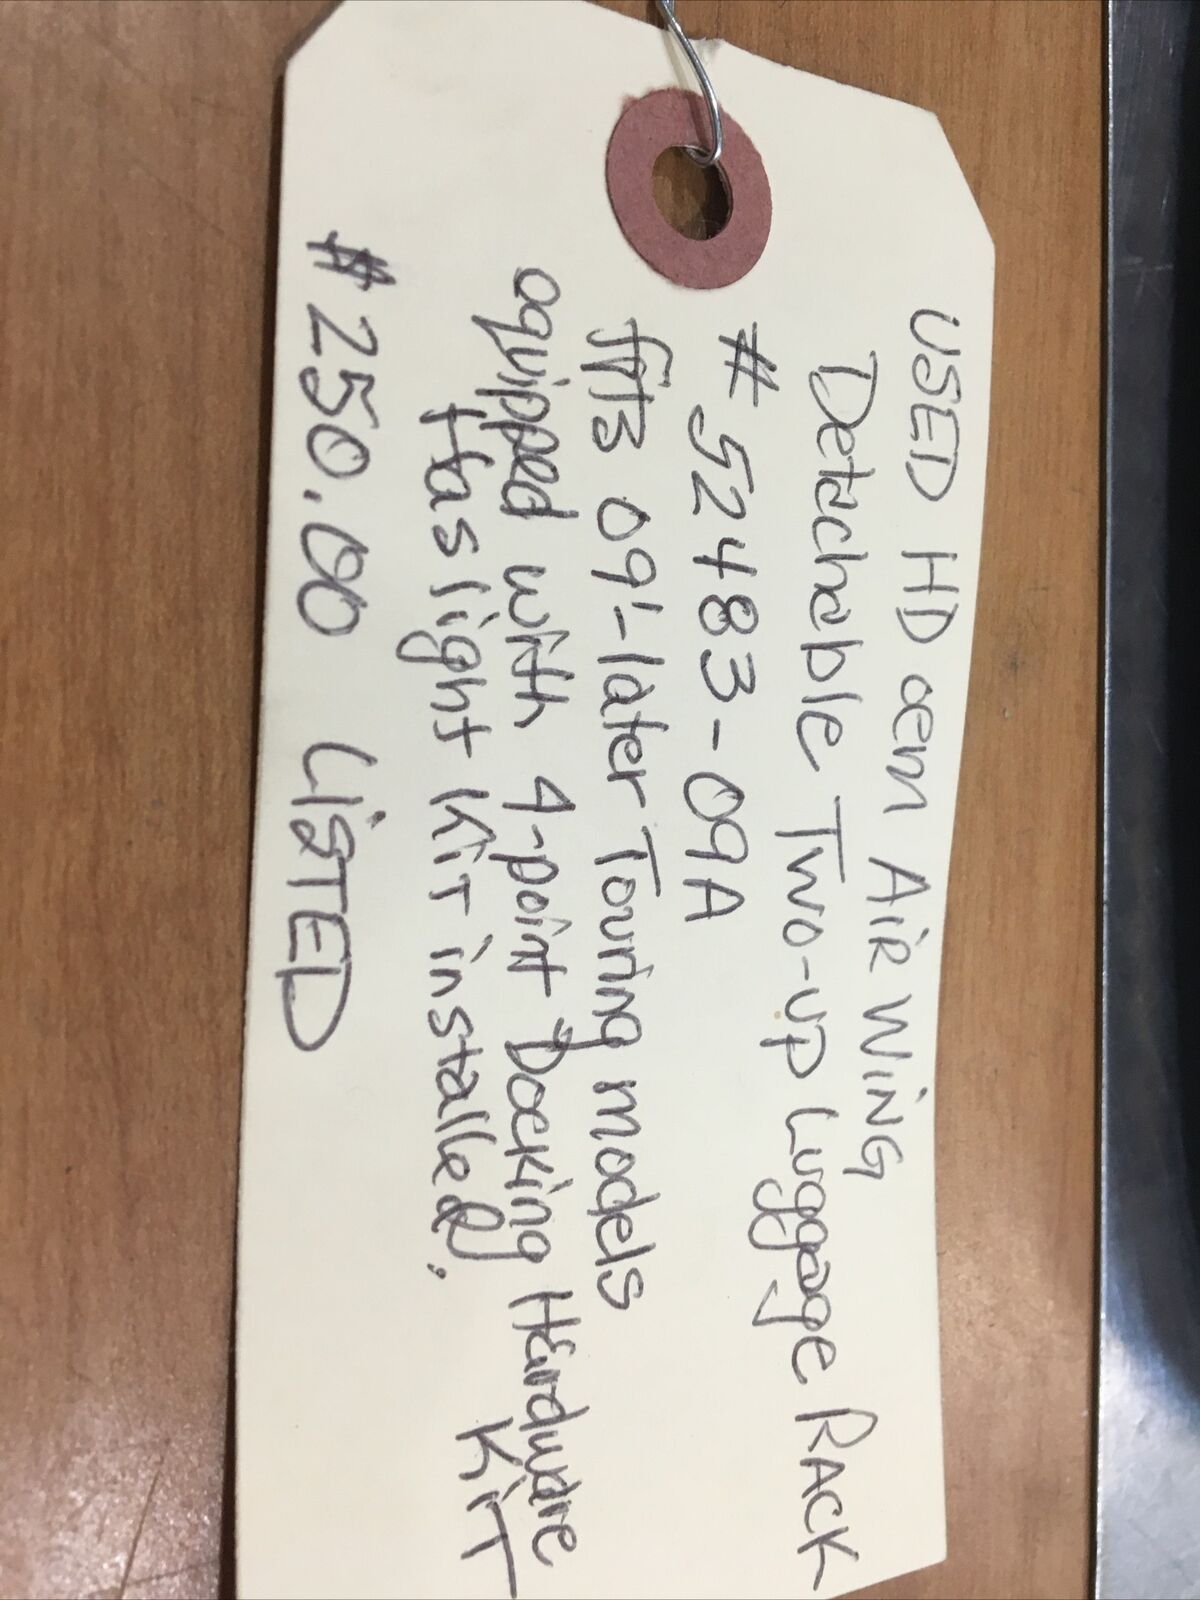 USED HD oem AiR WiNG
Detachable Two-up Luggage RACK
# 52483-09A
fits 09'-later Touring models
equipped with 4-point Docking Hardware
KiT
Has light KiT installed.
#250.00 LiSTED